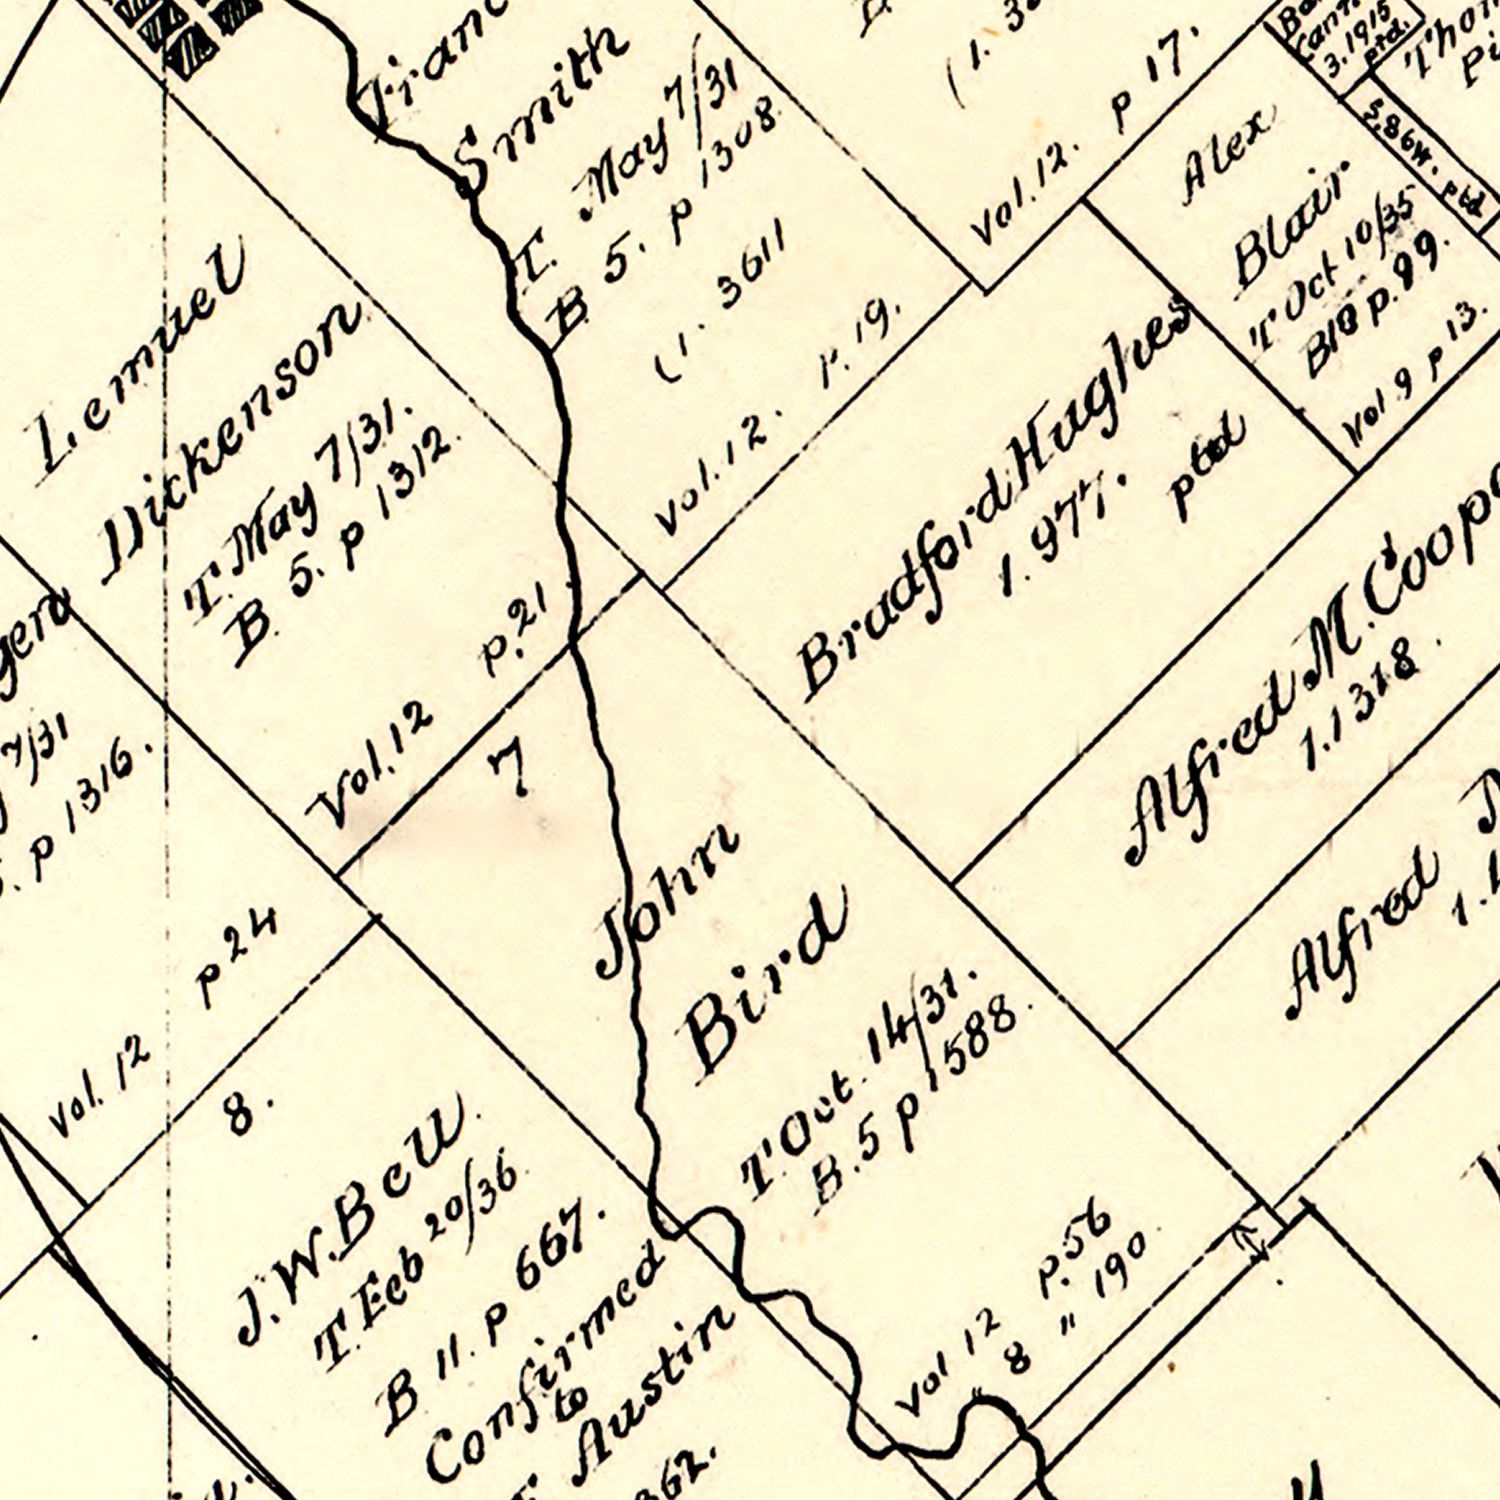 Smith
T. May 7/31
B 5. p 1308.
(1. 3611
Vol. 12. p. 19.
Vol. 12. p 17.
3. 1915
ptd.
S.86W. ptd
Alex
Blair
T Oct 10/35
B18 p. 99.
Vol. 9 p 13.
Lemuel
Dickenson
T. May 7/31.
B 5. p 1312.
Vol. 12 p. 21
Bradford Hughes
1. 977. ptd
Alfred M. Coop
1. 1318.
Alfred
7/31
p 1316.
Vol. 12 p 24
7
John
Bird
T. Oct. 14/31.
B. 5 p 1588.
Vol 12 p. 56
" 8 " 190.
8.
J. W. Bell.
T. Feb 20/36.
B 11. p 667.
Confirmed
to
Austin
362.